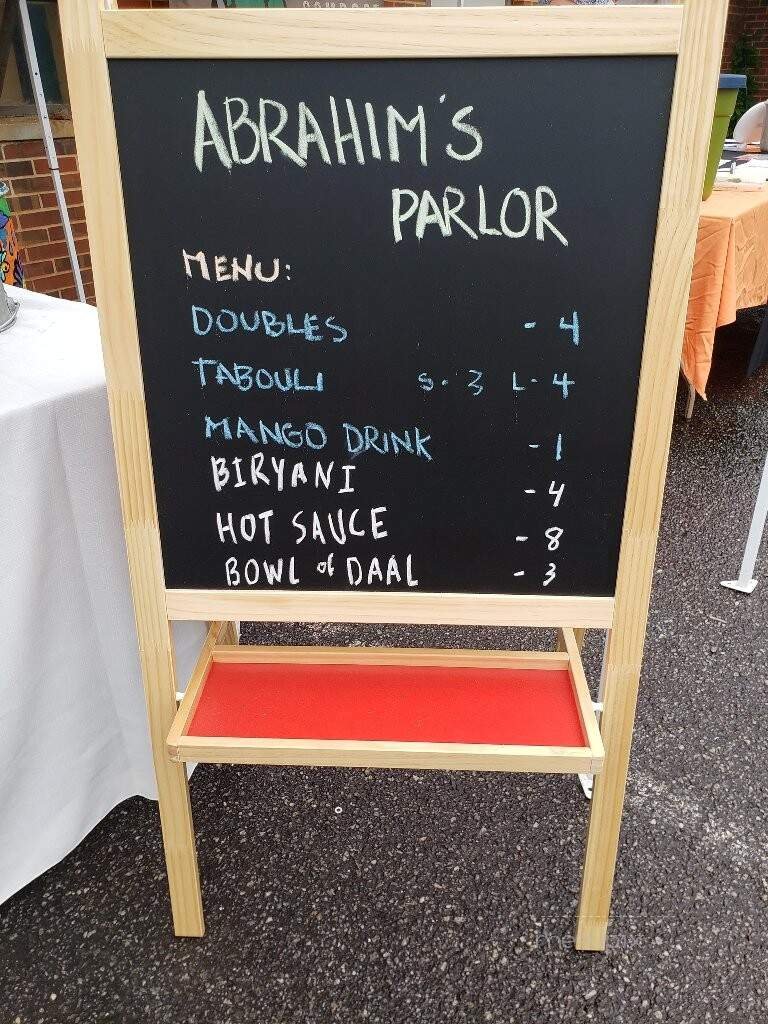 ABRAHIM'S
PARLOR
MENU:
DOUBLES - 4
TABOULI S. 3 L- 4
MANGO DRINK - 1
BIRYANI - 4
HOT SAUCE - 8
BOWL of DAAL - 3